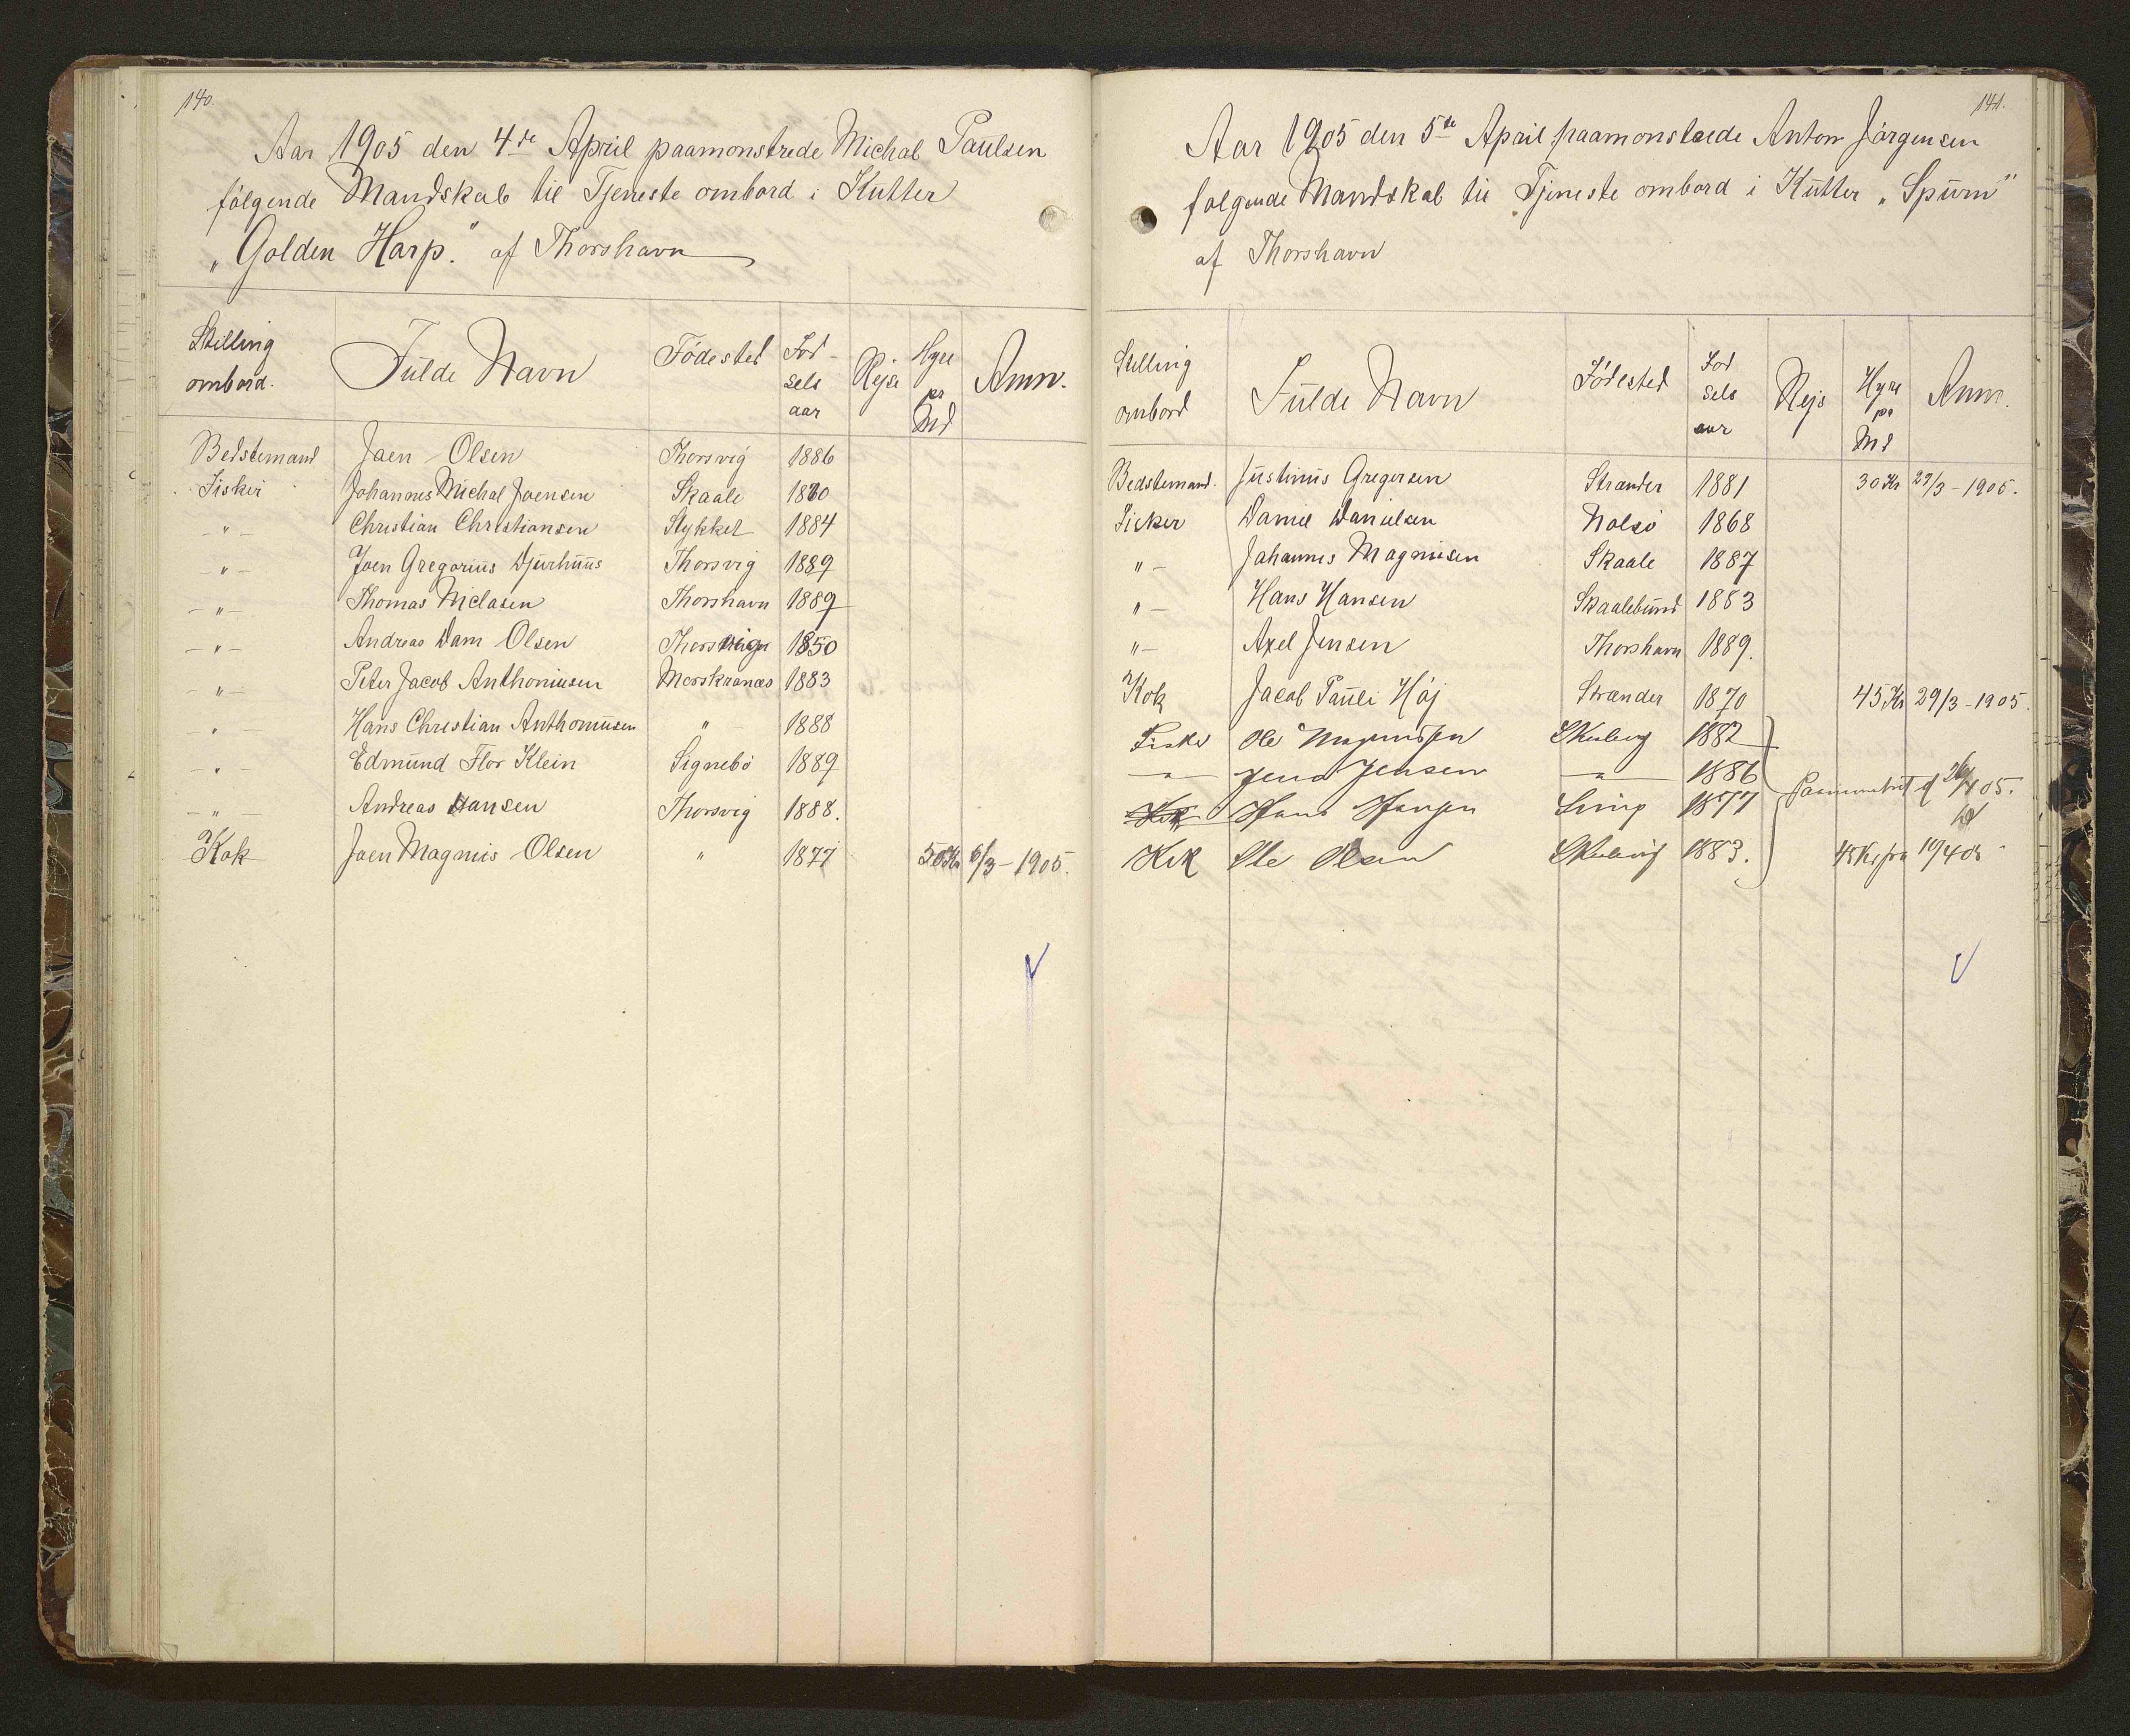 140.
Aar 1905 den 4de April paamonstrede Michal Paulsen
følgende Mandskab til Tjeneste ombord i Kutter
„Golden Harp." af Thorshavn
Stilling ombord. Fulde Navn Fødested Fød-sels aar Rejse Hyre pr Md Anm.
Bedstemand Joen Olsen Thorsvig 1886
Fisker Johannes Michal Joensen Skaale 1880
–„– Christian Christiansen Stykket 1884
–„– Joen Gregorius Djurhuus Thorsvig 1889
–„– Thomas Thorshavn 1889
–„– Andreas Dam Olsen Thorsvig 1850
–„– Peter Jacob Anthoniusen Morskranæs 1883
„ – Hans Christian Anthoniusen „ 1888
–„– Edmund Flor Klein Signebø 1889
–„– Andreas Hansen Thorsvig 1888.
Kok Joen Magnus Olsen „ 1877 50 Kr 6/3 – 1905.
141.
Aar 1905 den 5te April paamonstrede Anton Jørgensen
følgende Mandskab til Tjeneste ombord i Kutter „Spurn"
af Thorshavn
Stilling ombord Fulde Navn Fødested Fød sels aar Rejs Hyre pr Md Anm.
Bedstemand. Justinus Gregersen Strænder 1881 30 Kr 29/3 – 1905.
Fisker Daniel Danielsen Nolsø 1868
„ – Johannes Magnusen Skaale 1887
„ – Hans Hansen Skaalebund 1883
„ – Axel Jensen Thorshavn 1889.
Kok Jacob Pauli Høj Strænder 1870 45 Kr 29/3 – 1905.
Fisker Ole 1882
–„– Jens Jensen –„– 1886
Kok Hans Hansen 1877 Paamonstret d 26/4 05.
Kok Ole Olsen 1883. 45 Kr fra 19/4 05